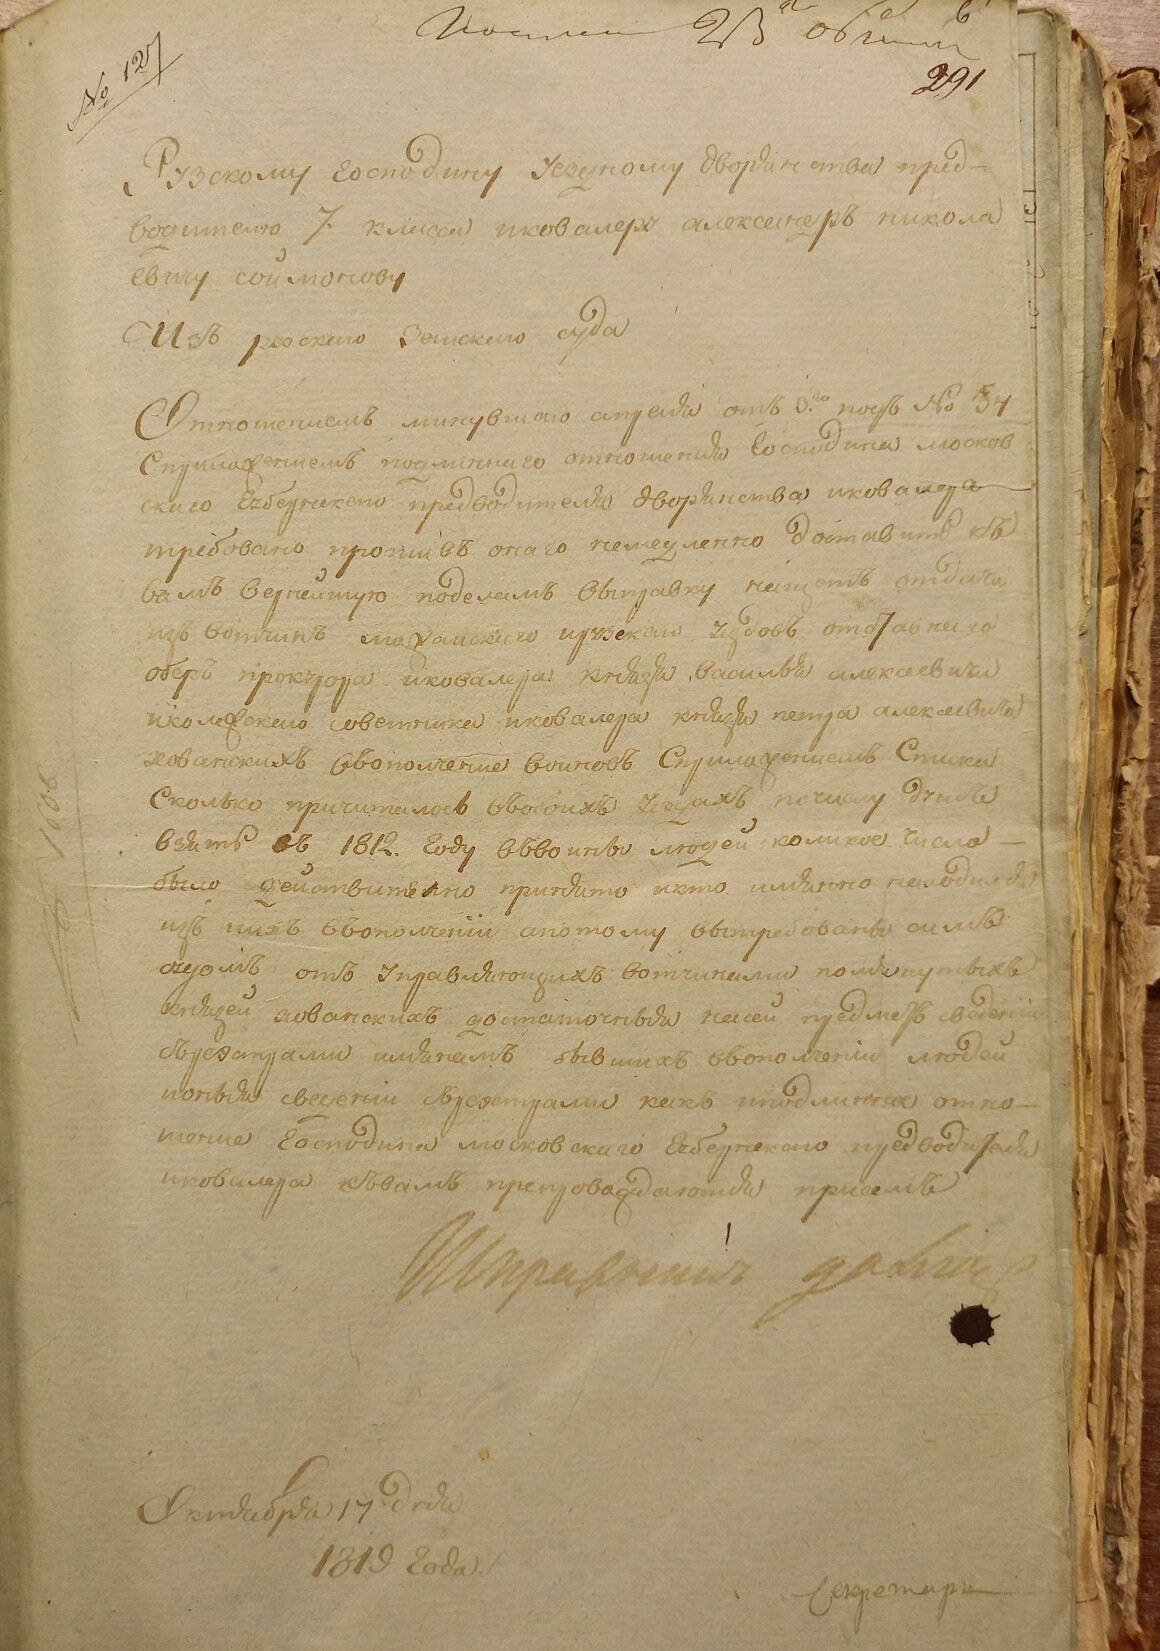 № 127
23
291
Рузскому господину уездному дворянства пред-
водителю 7. класса икавалеру александръ никола
евичу соймонову
Изъ рузскаго Земскаго суда
Отношениемъ минувшаго апреля отъ 3.го подъ № 34
Сприложениемъ подлиннаго отношения Господина москов
скаго Губернскаго предводителя дворянства икавалера
требовано противъ онаго немедленно доставить къ
вамъ вернейшую поделамъ выправку насчетъ отдачи
изъ вотчинъ можайскаго ирузскаго уездовъ отставнаго
оберъ прокурора икавалера князя василья алексеевича
иколежскаго советника икавалера князя петра алексеевича
хованскихъ вьополчение воиновъ Сприложениемъ Списка
Сколько причиталось вьобоихъ уездахъ почислу душъ
взять въ 1812. Году вьвоины людей коликое число
было действительно принято икто имянно находился
изъ нихъ вьополчении апотому вытребованы симъ
судомъ отъ управляющихъ вотчинами помянутыхъ
князей хованскихъ достаточныя насей предметъ сведении
сьреэстрами имянамъ бывшихъ вьополчении людей
ионыя сведении сьреэстрами какъ иподлинное отно-
шение Господина московскаго Губернскаго предводителя
икавалера квамъ препровождаются присемъ
Исправникъ
Октября 17 дня
1819 Года.
Секретарь